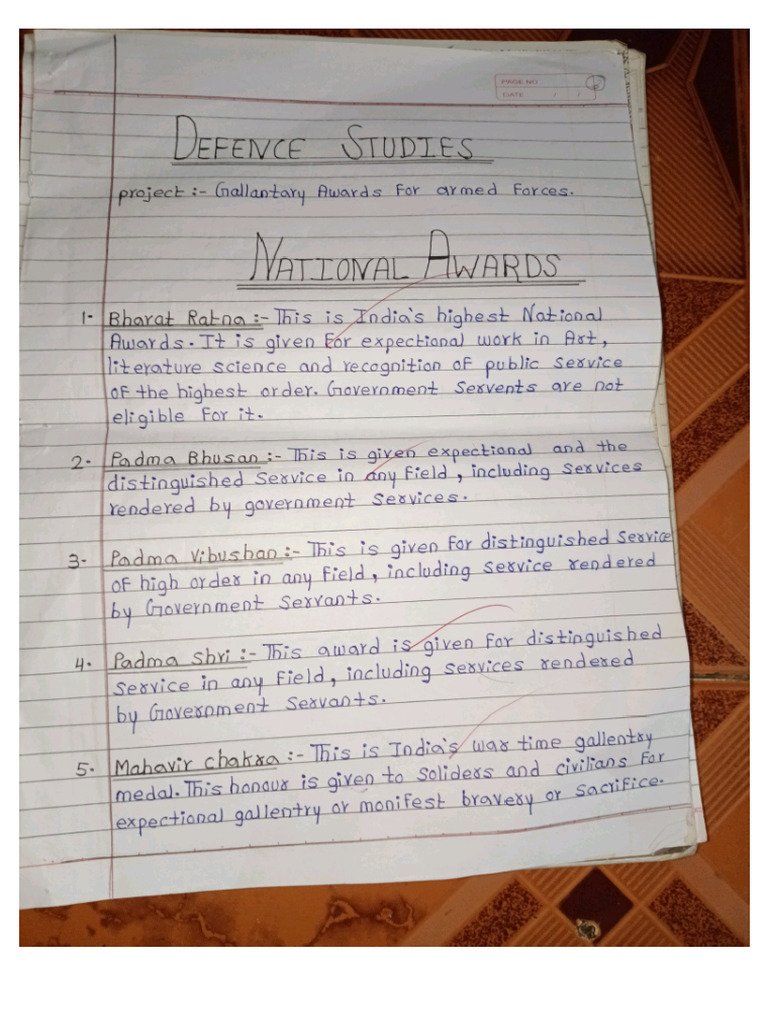 PAGE NO
DATE / /
DEFENCE STUDIES
project :- Gallantary Awards For armed Forces.
NATIONAL AWARDS
1- Bharat Ratna :- This is India's highest National
Awards. It is given for expectional work in Art,
literature science and recognition of public service
of the highest order. Government Servents are not
eligible for it.
2- Padma Bhusan :- This is given expectional and the
distinguished service in any field, including services
rendered by government services.
3- Padma Vibushan :- This is given for distinguished service
of high order in any field, including service rendered
by Government Servants.
4. Padma Shri :- This award is given for distinguished
service in any field, including services rendered
by Government Servants.
5. Mahavir Chakra :- This is India's war time gallentry
medal. This honour is given to Soliders and civilians for
expectional gallentry or monifest bravery or sacrifice.